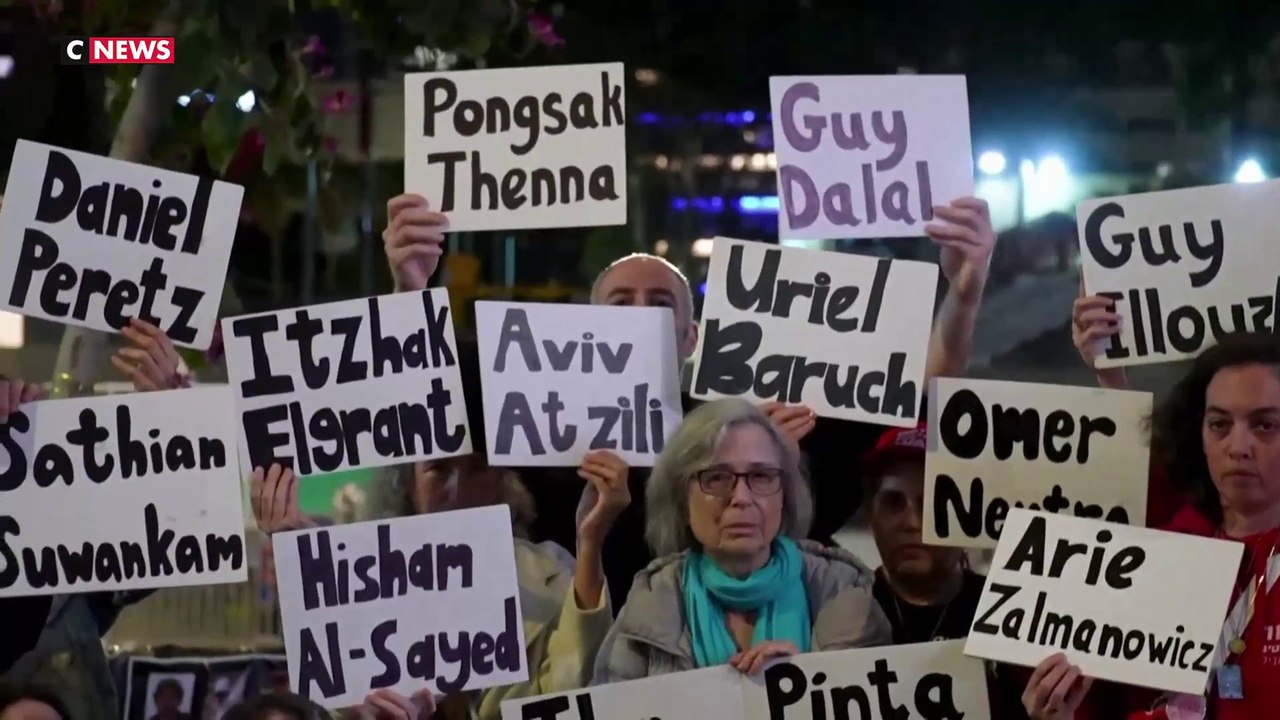 CNEWS
Pongsak
Thenna
Guy
Dalal
Daniel
Peretz
Guy
Illouz
Uriel
Baruch
Itzhak
Elgrant
Aviv
Atzili
Omer
Sathian
Suwankam
Hisham
Al-Sayed
Arie
Zalmanowicz
Pinta